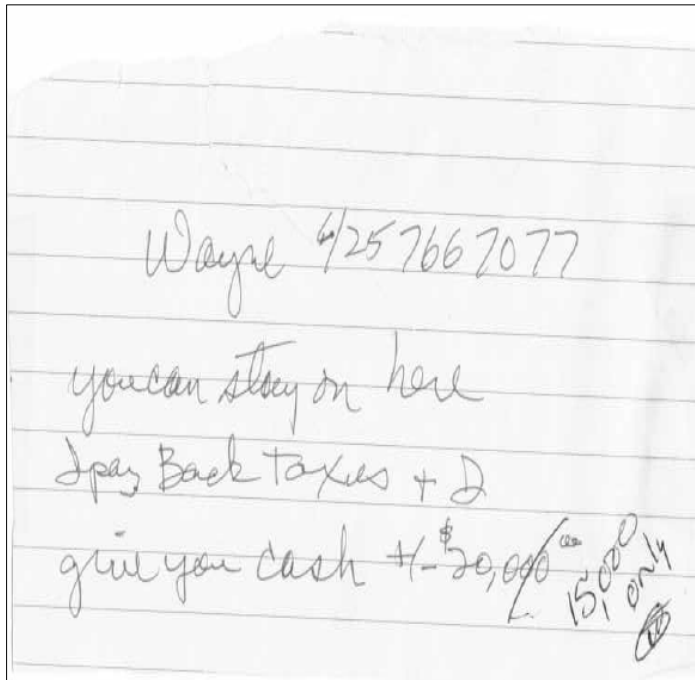 Wayne 4/25 7667077
you can stay on here
I pay Back taxes + I
give you cash +/- $20,000/00
15,000
only